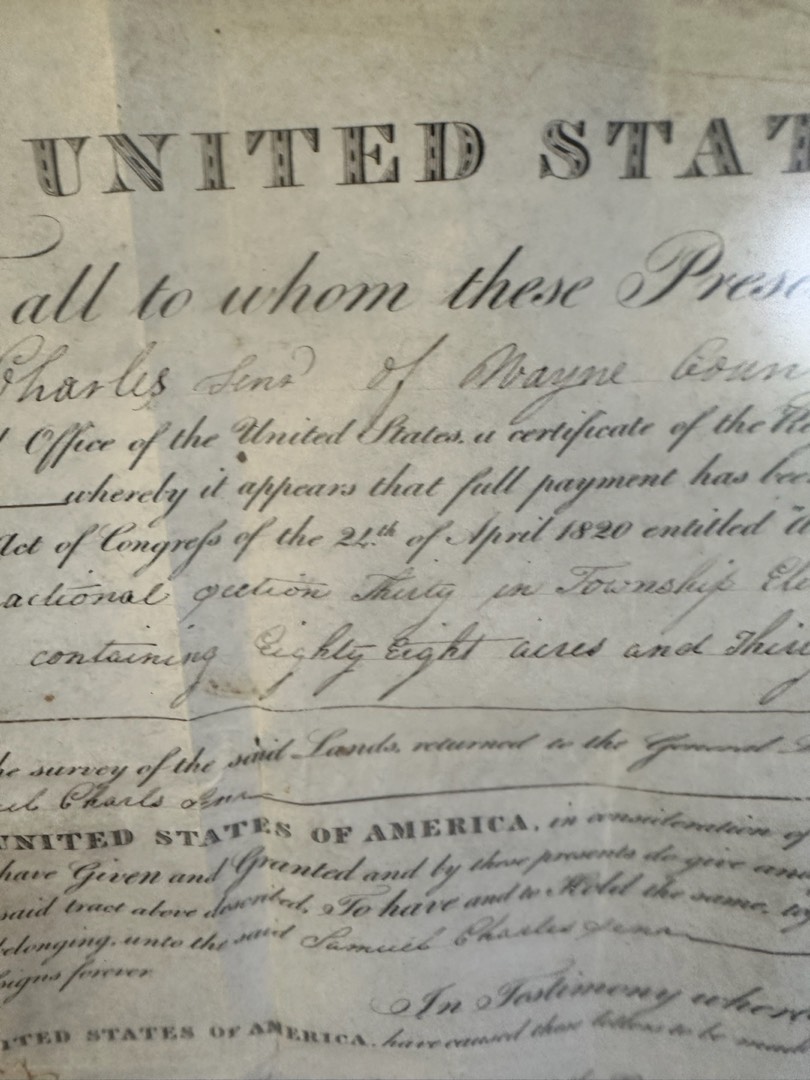 UNITED STAT
all to whom these Prese
Charles Senr of Wayne Coun
Office of the United States, a certificate of the Re
whereby it appears that full payment has bee
Act of Congress of the 24th of April 1820 entitled "a
actional section Thirty in Township Ele
containing Eighty Eight acres and Thir
he survey of the said Lands, returned to the General L
uel Charls Senr
UNITED STATES OF AMERICA, in consideration of
have Given and Granted and by these presents do give and
said tract above described, To have and to Hold the same, to
belonging, unto the said Samuel Charles Senr
signs forever
In Testimony where
ITED STATES OF AMERICA, have caused these letters to be made